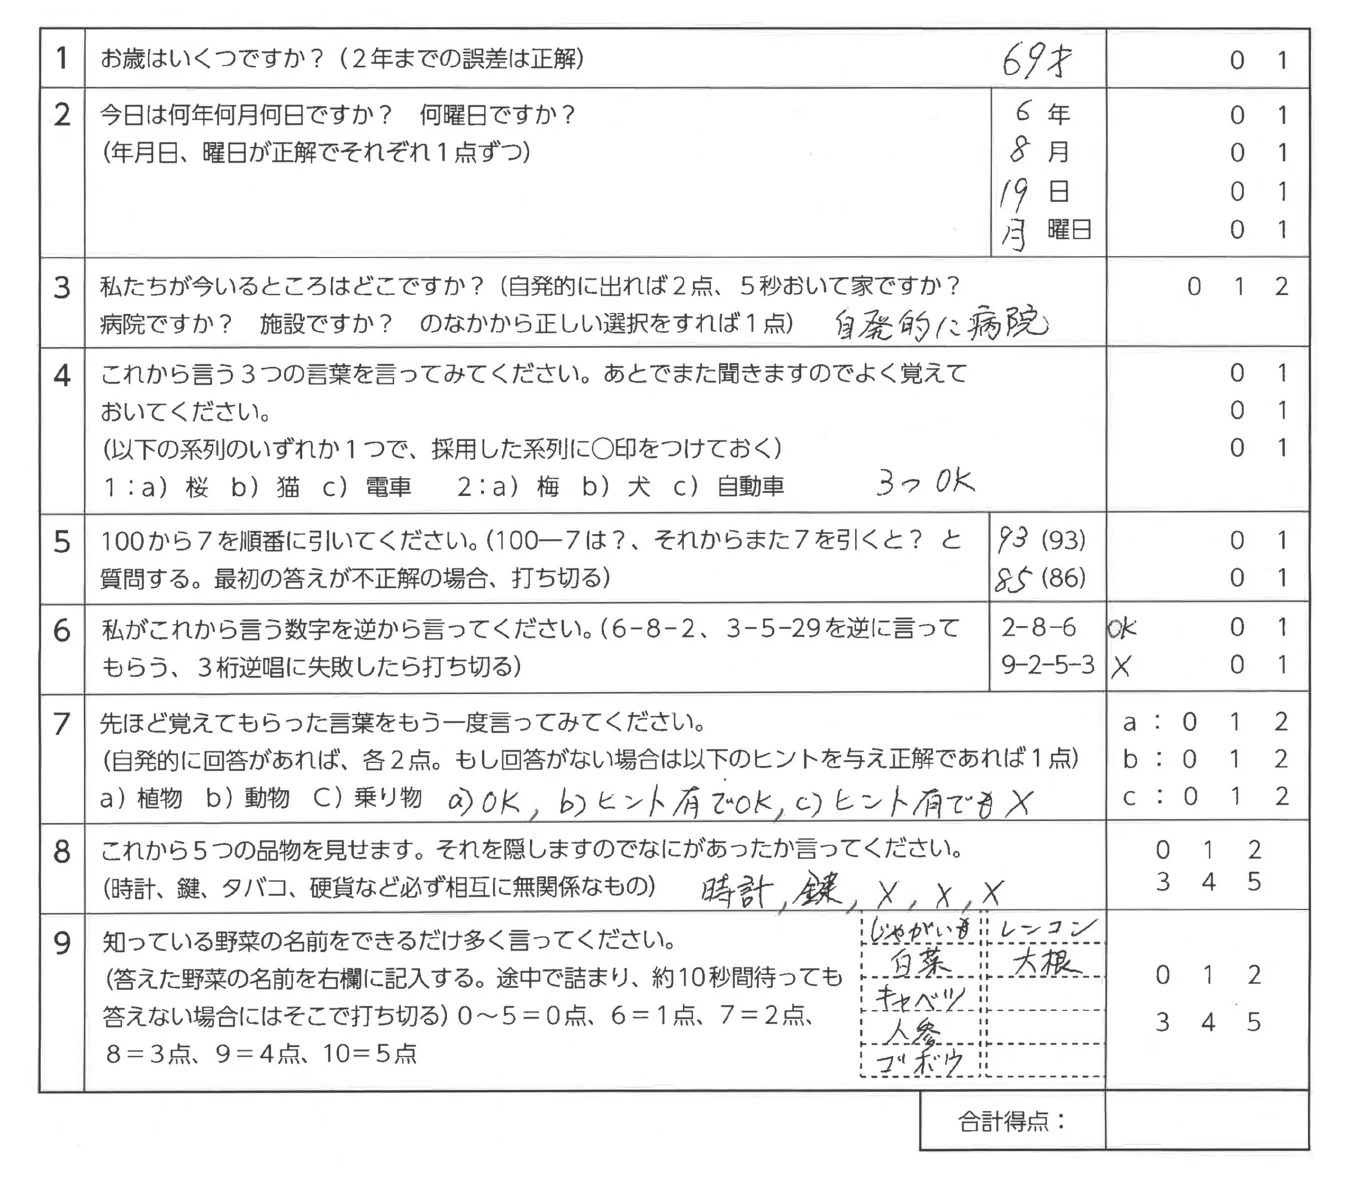 1 お歳はいくつですか？（2年までの誤差は正解） 69才 0 1
2 今日は何年何月何日ですか？ 何曜日ですか？ 6 年 0 1
（年月日、曜日が正解でそれぞれ1点ずつ） 8 月 0 1
19 日 0 1
月 曜日 0 1
3 私たちが今いるところはどこですか？（自発的に出れば2点、5秒おいて家ですか？ 0 1 2
病院ですか？ 施設ですか？ のなかから正しい選択をすれば1点） 自発的に病院
4 これから言う3つの言葉を言ってみてください。あとでまた聞きますのでよく覚えて 0 1
おいてください。 0 1
（以下の系列のいずれか1つで、採用した系列に○印をつけておく） 0 1
1：a）桜 b）猫 c）電車 2：a）梅 b）犬 c）自動車 3つOK
5 100から7を順番に引いてください。（100―7は？、それからまた7を引くと？ と 93 (93) 0 1
質問する。最初の答えが不正解の場合、打ち切る） 85 (86) 0 1
6 私がこれから言う数字を逆から言ってください。（6-8-2、3-5-29を逆に言って 2-8-6 OK 0 1
もらう、3桁逆唱に失敗したら打ち切る） 9-2-5-3 X 0 1
7 先ほど覚えてもらった言葉をもう一度言ってみてください。 a：0 1 2
（自発的に回答があれば、各2点。もし回答がない場合は以下のヒントを与え正解であれば1点） b：0 1 2
a）植物 b）動物 C）乗り物 a)OK, b)ヒント有でOK, c)ヒント有でもX c：0 1 2
8 これから5つの品物を見せます。それを隠しますのでなにがあったか言ってください。 0 1 2
（時計、鍵、タバコ、硬貨など必ず相互に無関係なもの） 時計, 鍵, X, X, X 3 4 5
9 知っている野菜の名前をできるだけ多く言ってください。 じゃがいも レンコン
（答えた野菜の名前を右欄に記入する。途中で詰まり、約10秒間待っても 白菜 大根 0 1 2
答えない場合にはそこで打ち切る）0～5＝0点、6＝1点、7＝2点、 キャベツ 3 4 5
8＝3点、9＝4点、10＝5点 人参
ゴボウ
合計得点：